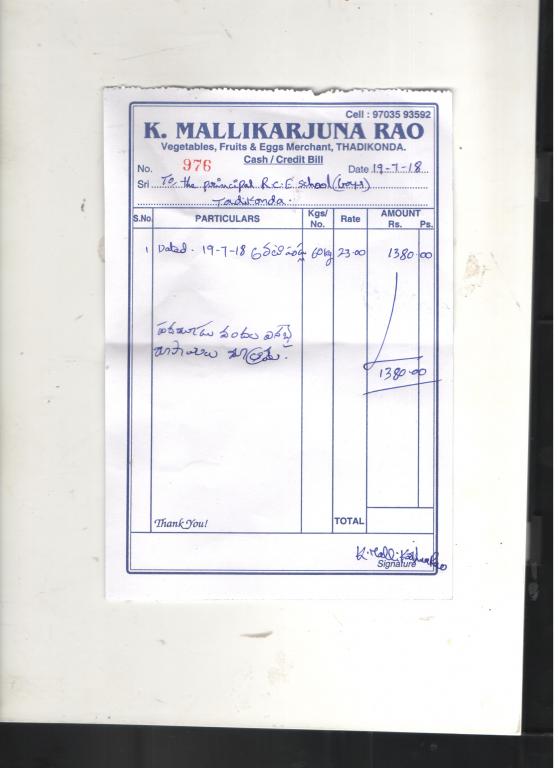 Cell : 97035 93592
K. MALLIKARJUNA RAO
Vegetables, Fruits & Eggs Merchant, THADIKONDA.
Cash / Credit Bill
No. 976 Date 19-7-18
Sri To, the principal R.C.E school (boys)
Tadikonda.
S.No. PARTICULARS Kgs/ No. Rate AMOUNT Rs. Ps.
1 Dated. 19-7-18 60kg 23-00 1380-00
1380-00
Thank You! TOTAL
Signature